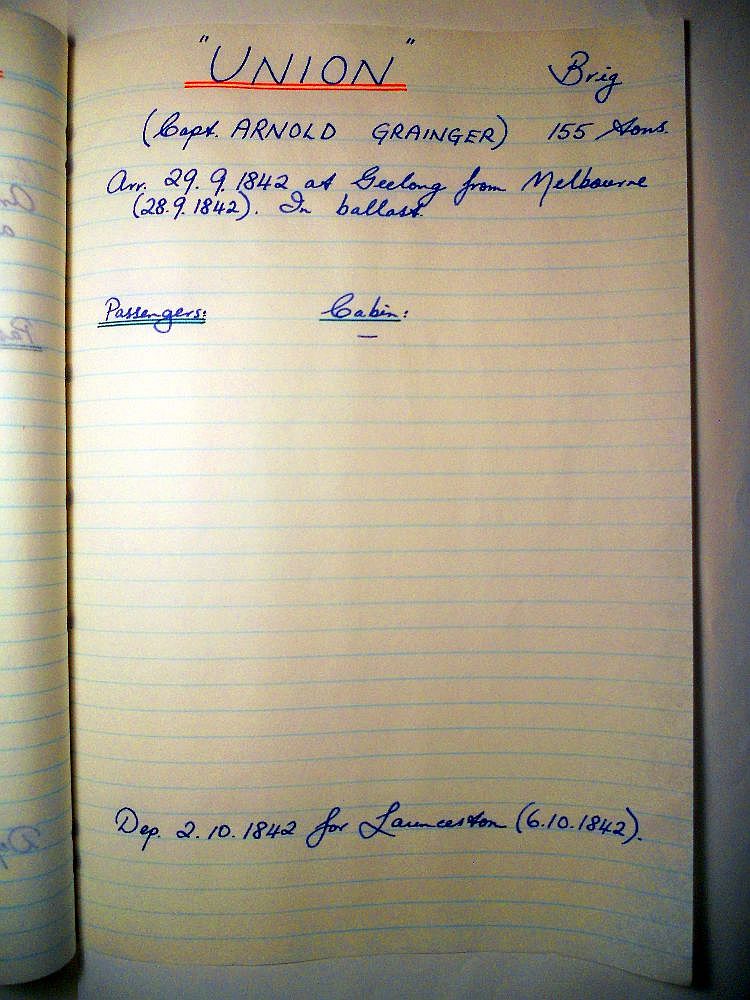 "UNION" Brig
(Capt. ARNOLD GRAINGER) 155 tons.
Arr. 29.9.1842 at Geelong from Melbourne
(28.9.1842). In ballast.
Passengers: Cabin:
—
Dep. 2.10.1842 for Launceston (6.10.1842).